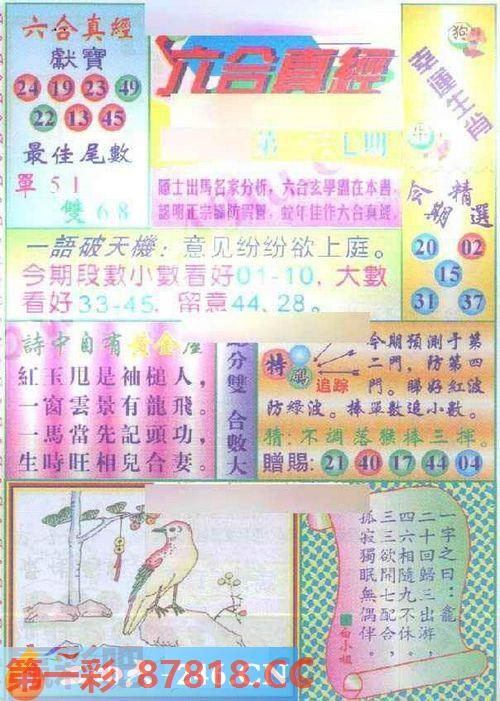 六合真經
獻寶
24 19 23 49
22 13 45
最佳尾數
單 51
雙 68
六合真經
第 七期
隱士出馬名家分析,六合玄學盡在本書,
認明正宗謹防假冒,蛇年佳作六合真經,
狗
幸運生肖
牛
今期精選
20 02
15
31 37
一語破天機:意见纷纷欲上庭。
今期段數小數看好01-10,大數
看好33-45,留意44、28。
詩中自有黃金屋
紅玉甩是袖槌人,
一窗雲景有龍飛。
一馬當先記頭功,
生時旺相兒合妻。
分雙 合數大
特碼
追踪
今期預測于第
二門,防第四
門。睇好紅波
防綠波。捧單數追小數。
猜:不調落猴捧三揮。
贈賜:21 40 17 44 04
一字之曰:龍
二十回歸三出游,
四六相隨九不休,
三三欲開七配合,
孤寂獨眠無偶伴。
白小姐
246.CN
第一彩 87818.CC